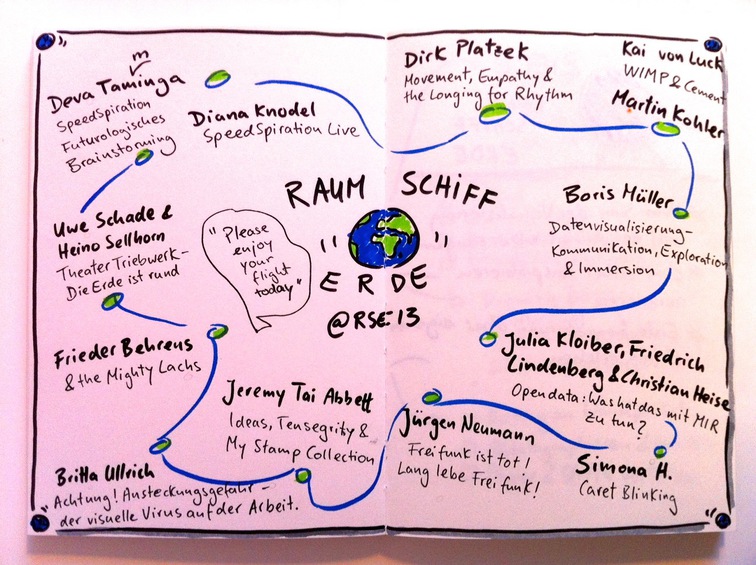 m
Deva Taminga
Speedspiration
Futurologisches
Brainstorming
Diana Knodel
SpeedSpiration Live
Dirk Platzek
Movement, Empathy &
the Longing for Rhythm
Kai von Luck
WIMP & Cement
Martin Kohler
Boris Müller
Datenvisualisierung-
Kommunikation, Exploration
& Immersion
RAUM SCHIFF
ERDE
@RSE13
"Please
enjoy
your
flight
today"
Uwe Schade &
Heino Sellhorn
Theater Triebwerk-
Die Erde ist rund
Frieder Behrens
& the Mighty Lachs
Julia Kloiber, Friedrich
Lindenberg & Christian Heise
Opendata: Was hat das mit MIR
zu tun?
Jeremy Tai Abbett
Ideas, Tensegrity &
My Stamp Collection
Jürgen Neumann
Freifunk ist tot!
Lang lebe Freifunk!
Simona H.
Caret Blinking
Britta Ullrich
Achtung! Ansteckungsgefahr-
der visuelle Virus auf der Arbeit.